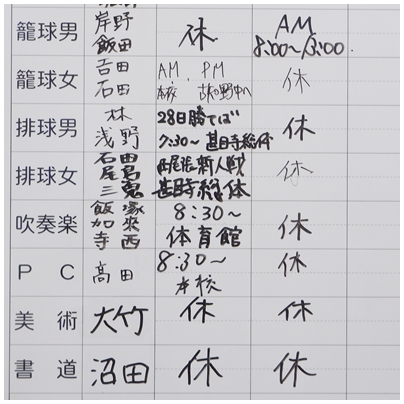 籠球男 岸野 休 AM
飯田 8:00~13:00.
籠球女 吉田 AM, PM 休
石田 本校
排球男 林 28日勝てば 休
浅野 7:30~ 甚目寺総体
排球女 石田 西尾張新人戦 休
尾
三鬼 甚目寺総体
吹奏楽 飯塚 8:30~ 休
加来
寺西 体育館
PC 高田 8:30~ 休
本校
美術 大竹 休 休
書道 沼田 休 休